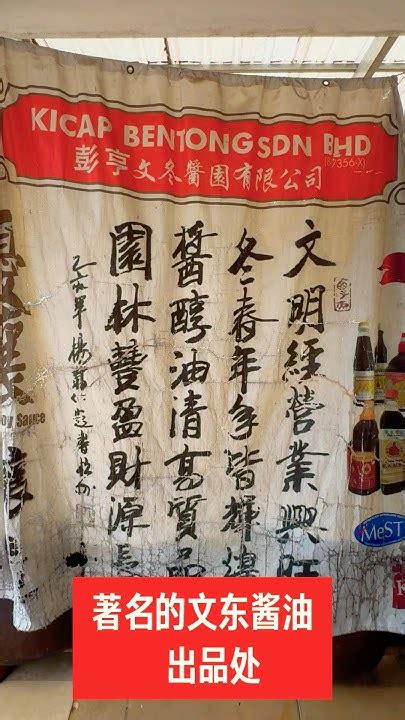 KICAP BENTONG SDN BHD
彭亨文冬醬園有限公司
文明經營業興旺
冬春年年皆輝煌
醬醇油清高質品
園林豐盈財源長
MeSTI
著名的文东酱油
出品处